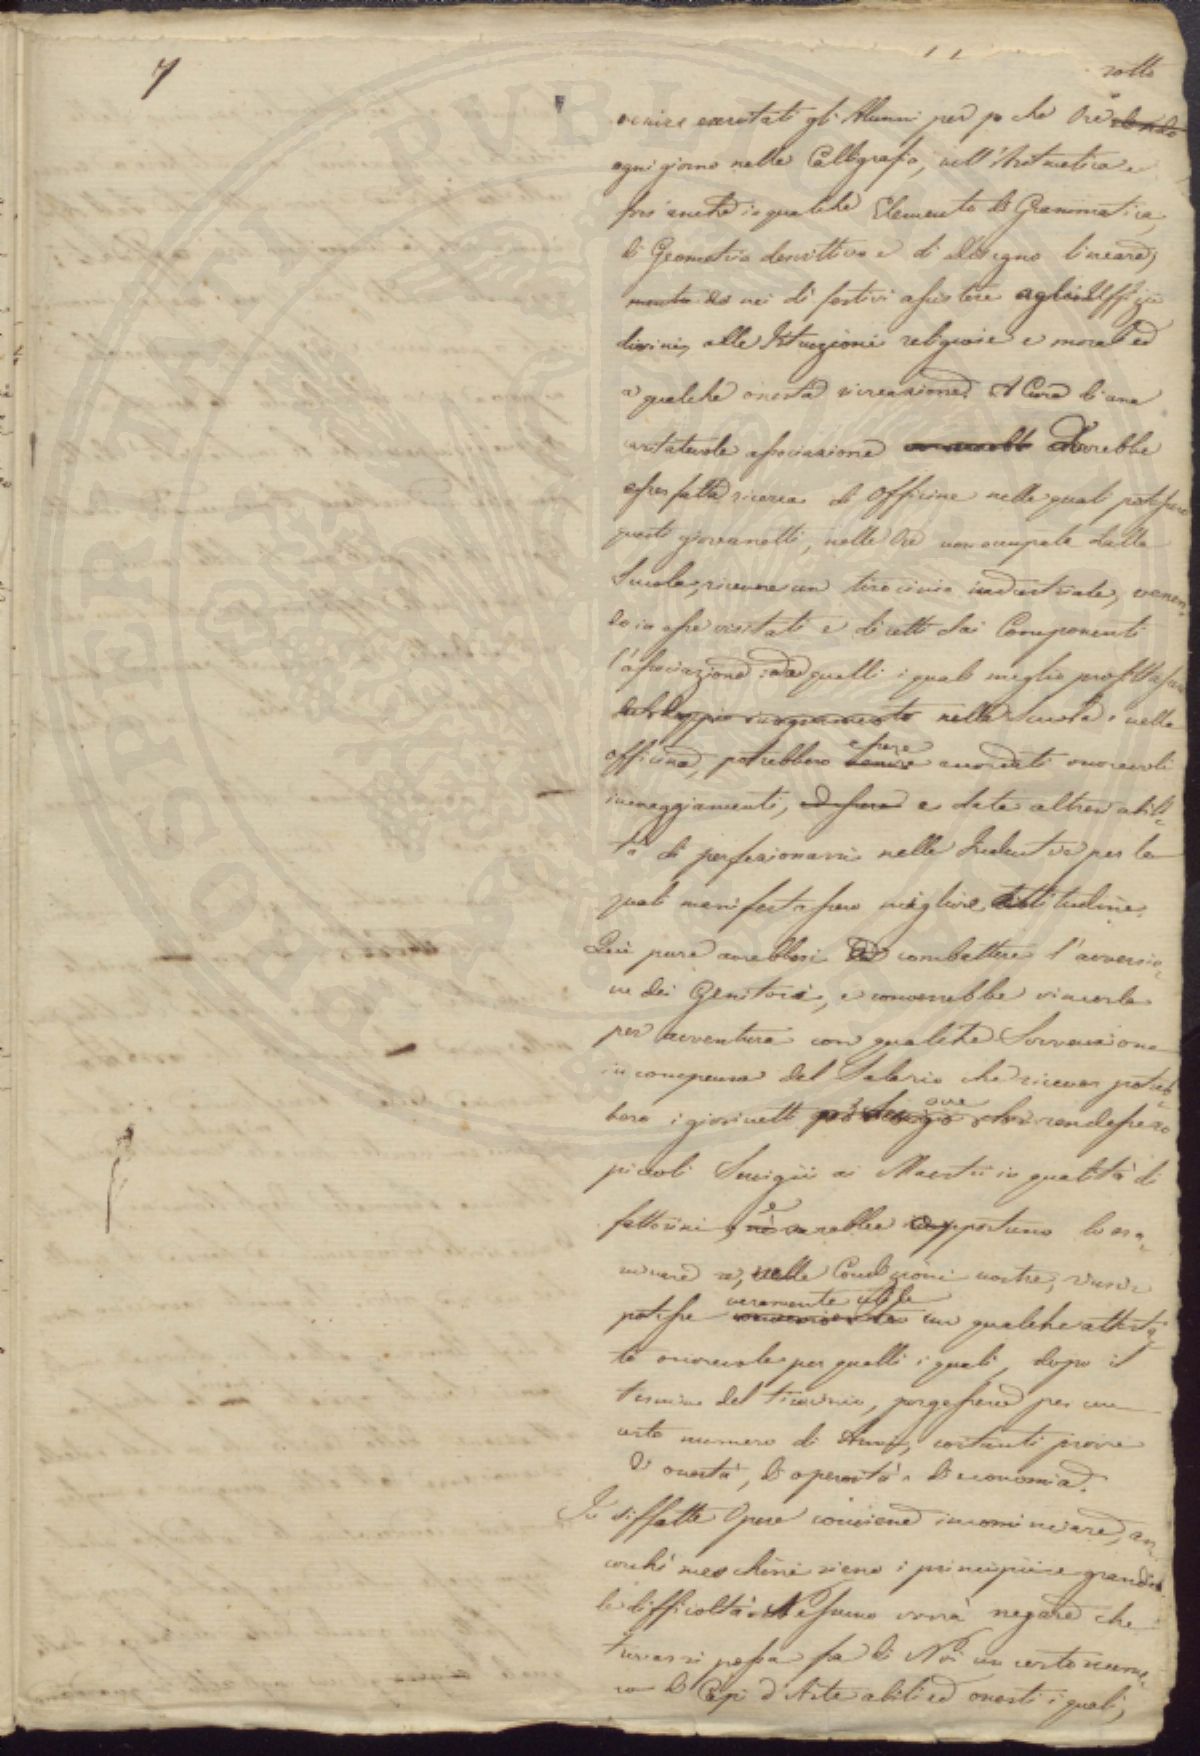 7
sotto
venire esercitati gli Alunni per poche Ore
ogni giorno nella Calligrafia, nell'Aritmetica e
fors'anche in qualche Elemento di Grammatica,
di Geometria descrittiva e di disegno lineare,
nei dì festivi assistere agli Uffizii
divini, alle Istruzioni religiose e morali ed
a qualche onesta ricreazione. A Cura d'una
caritatevole associazione dovrebbe
esser fatta ricerca di Officine nelle quali potessero
questi giovanetti, nelle Ore non occupate dalla
Scuola, ricevere un tirocinio industriale, venen-
do in esse visitati e diretti dai Componenti
l'associazione; ed a quelli i quali meglio profittassero
dal doppio insegnamento nella Scuola e nelle
officine, potrebbero essere venire accordati onorevoli
incoraggiamenti, e data altresì abili-
tà di perfezionarsi nelle Industrie per le
quali manifestassero migliore attitudine.
Qui pure avrebbesi a combattere l'avversio-
ne dei Genitori, e converrebbe vincerla
per avventura con qualche Sovvenzione
in compenso del Salario che ricever potreb-
bero i giovinetti ove rendessero
piccoli Servigii ai Maestri in qualità di
fattorini, e sarebbe opportuno lo esa-
minare se, nelle Condizioni nostre, riuscir
potesse veramente utile un qualche attesta-
to onorevole per quelli i quali, dopo il
termine del tirocinio, porgessero per un
certo numero di Anni, costanti prove
di onestà, di operosità e di economia.
In siffatte Opere conviene incominciare, an-
corché meschini sieno i principii e grandi
le difficoltà. Nessuno vorrà negare che
trovar si possa fra di Noi un certo nume-
ro di Capi d'Arte abili ed onesti i quali,